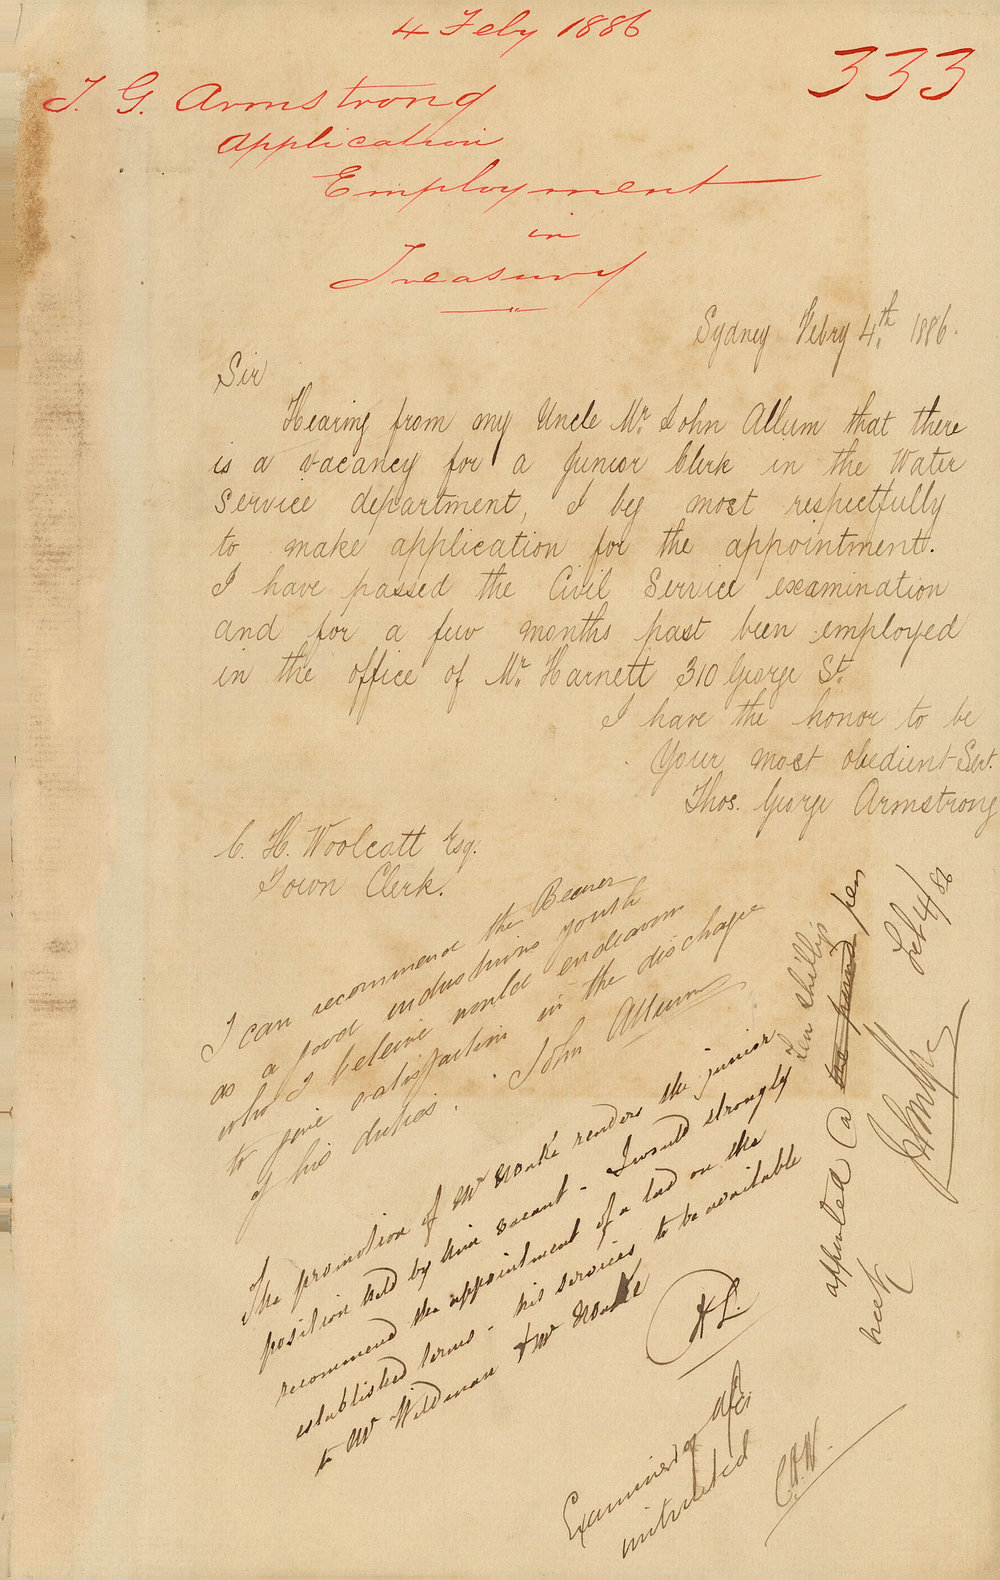 4 Feby 1886
333
T. G. Armstrong
Application
Employment
in
Treasury
Sydney Febry 4th. 1886.
Sir
Hearing from my Uncle Mr. John Allum that there
is a vacancy for a Junior Clerk in the Water
Service department, I beg most respectfully
to make application for the appointment.
I have passed the Civil Service examination
and for a few months past been employed
in the office of Mr. Harnett 310 George St.
I have the honor to be
Your most obedient Servt.
Thos. George Armstrong
C. H. Woolcott Esq.
Town Clerk.
I can recommend the Bearer
as a good industrious youth
who I beleive would endeavour
to give satisfaction in the discharge
of his duties. John Allum
The promotion of Mr Noake renders the junior
position held by him vacant - I would strongly
recommend the appointment of a lad on the
established terms - his services to be available
to Mr Wildman & Mr Noake
appointed @ ten shillgs per
week
Feb 4/86
Examiner of a/cs
instructed
C.H.W.